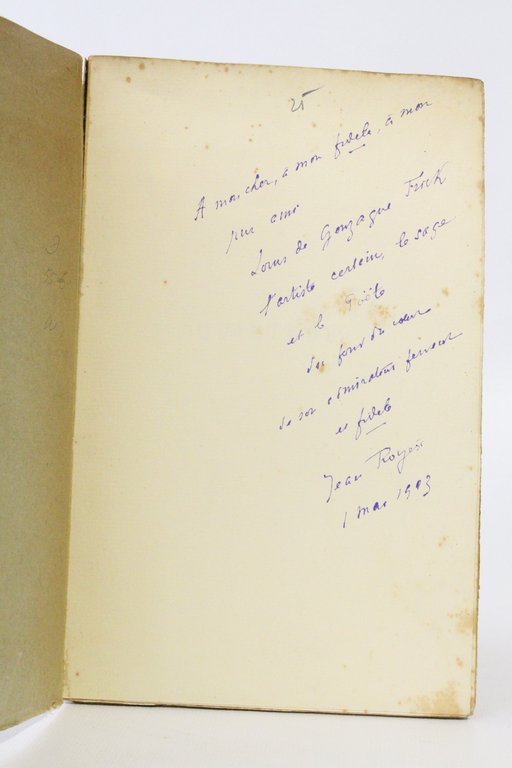 25
A mon cher, à mon fidèle, à mon
pur ami
Louis de Gonzague Frick
l'artiste certain, le sage
et le Poëte
du fond du coeur
de son admirateur fervent
et fidèle
Jean Royère
1 mai 1913